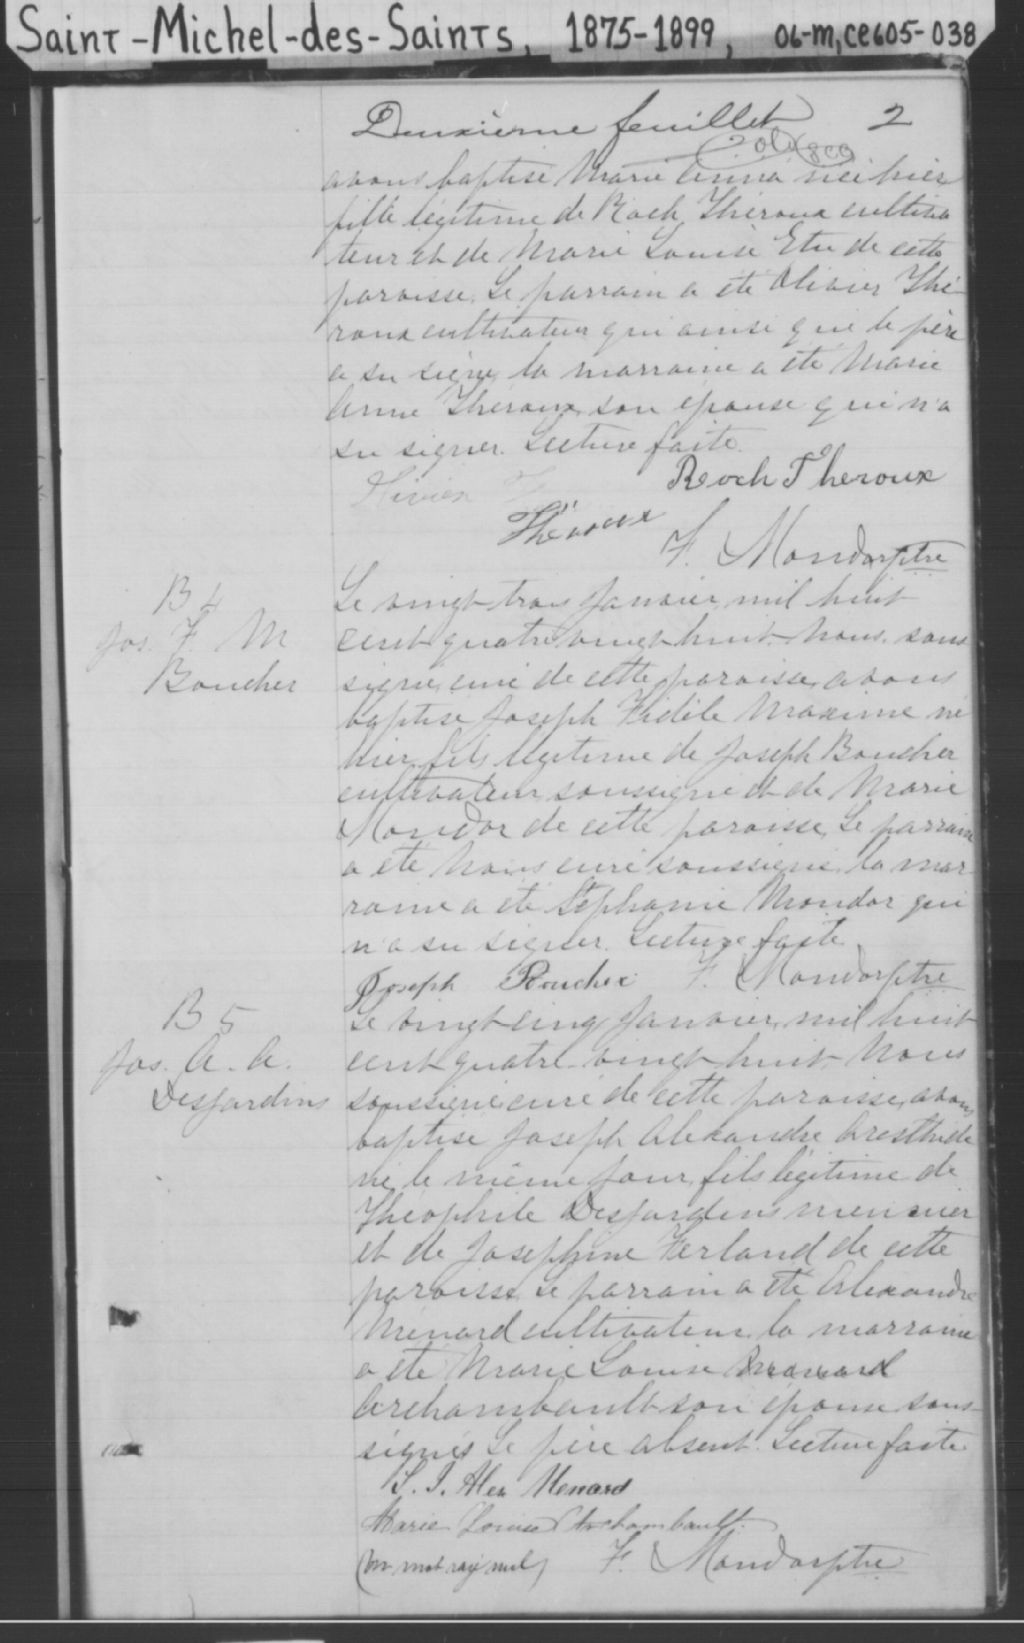 Saint-Michel-des-Saints, 1875-1899, 06-m,ce605-038
Deuxième feuillet 2
avons baptisé Marie Anna née hier
fille légitime de Roch Théroux cultiva
teur et de Marie Louise Etu de cette
paroisse. Le parrain a été Olivier Thé-
roux cultivateur qui ainsi que le père
a su signer, la marraine a été Marie
Anne Théroux son épouse qui n'a
su signer. Lecture faite.
Roch Theroux
Théroux
F. Mondor ptre
B 4
Jos. F. M
Boucher
Le vingt trois Janvier mil huit
cent quatre vingt huit Nous sous
signé, curé de cette paroisse avons
baptisé Joseph Fidèle Maxime né
hier fils légitime de Joseph Boucher
cultivateur soussigné et de Marie
Mondor de cette paroisse, Le parrain
a été Nous curé soussigné la mar
raine a été Stéphanie Mondor qui
n'a su signer. Lecture faite.
Joseph Boucher F. Mondor ptre
B 5
Jos. A. A.
Desjardins
Le vingt cinq Janvier mil huit
cent quatre-vingt huit Nous
soussigné curé de cette paroisse, avons
baptisé Joseph Alexandre Aresthide
né le même jour, fils légitime de
Théophile Desjardins menuisier
et de Josephine Ferland de cette
paroisse, Le parrain a été Alexandre
Menard cultivateur la marraine
a été Marie Louise
Archambault son épouse sous-
signés Le père absent. Lecture faite
S. J. Alex Menard
Marie Louise Archambault
(Un mot rayé nul) F. Mondor ptre